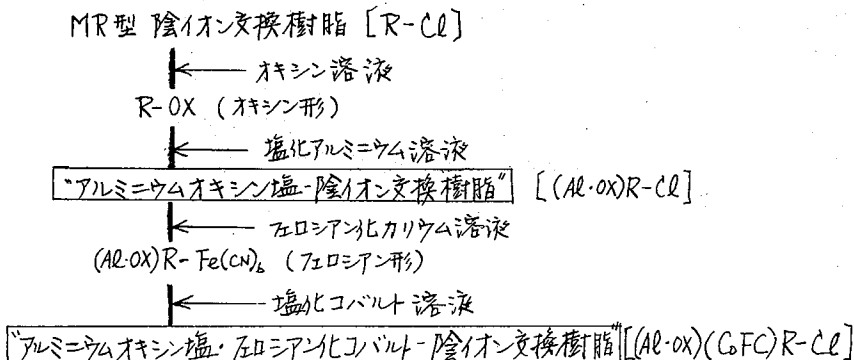 MR型 陰イオン交換樹脂 [R-Cl]
オキシン溶液
R-OX (オキシン形)
塩化アルミニウム溶液
"アルミニウムオキシン塩-陰イオン交換樹脂" [(Al・OX)R-Cl]
フェロシアン化カリウム溶液
(Al・OX)R-Fe(CN)₆ (フェロシアン形)
塩化コバルト溶液
"アルミニウムオキシン塩・フェロシアン化コバルト-陰イオン交換樹脂" [(Al・OX)(CoFC)R-Cl]